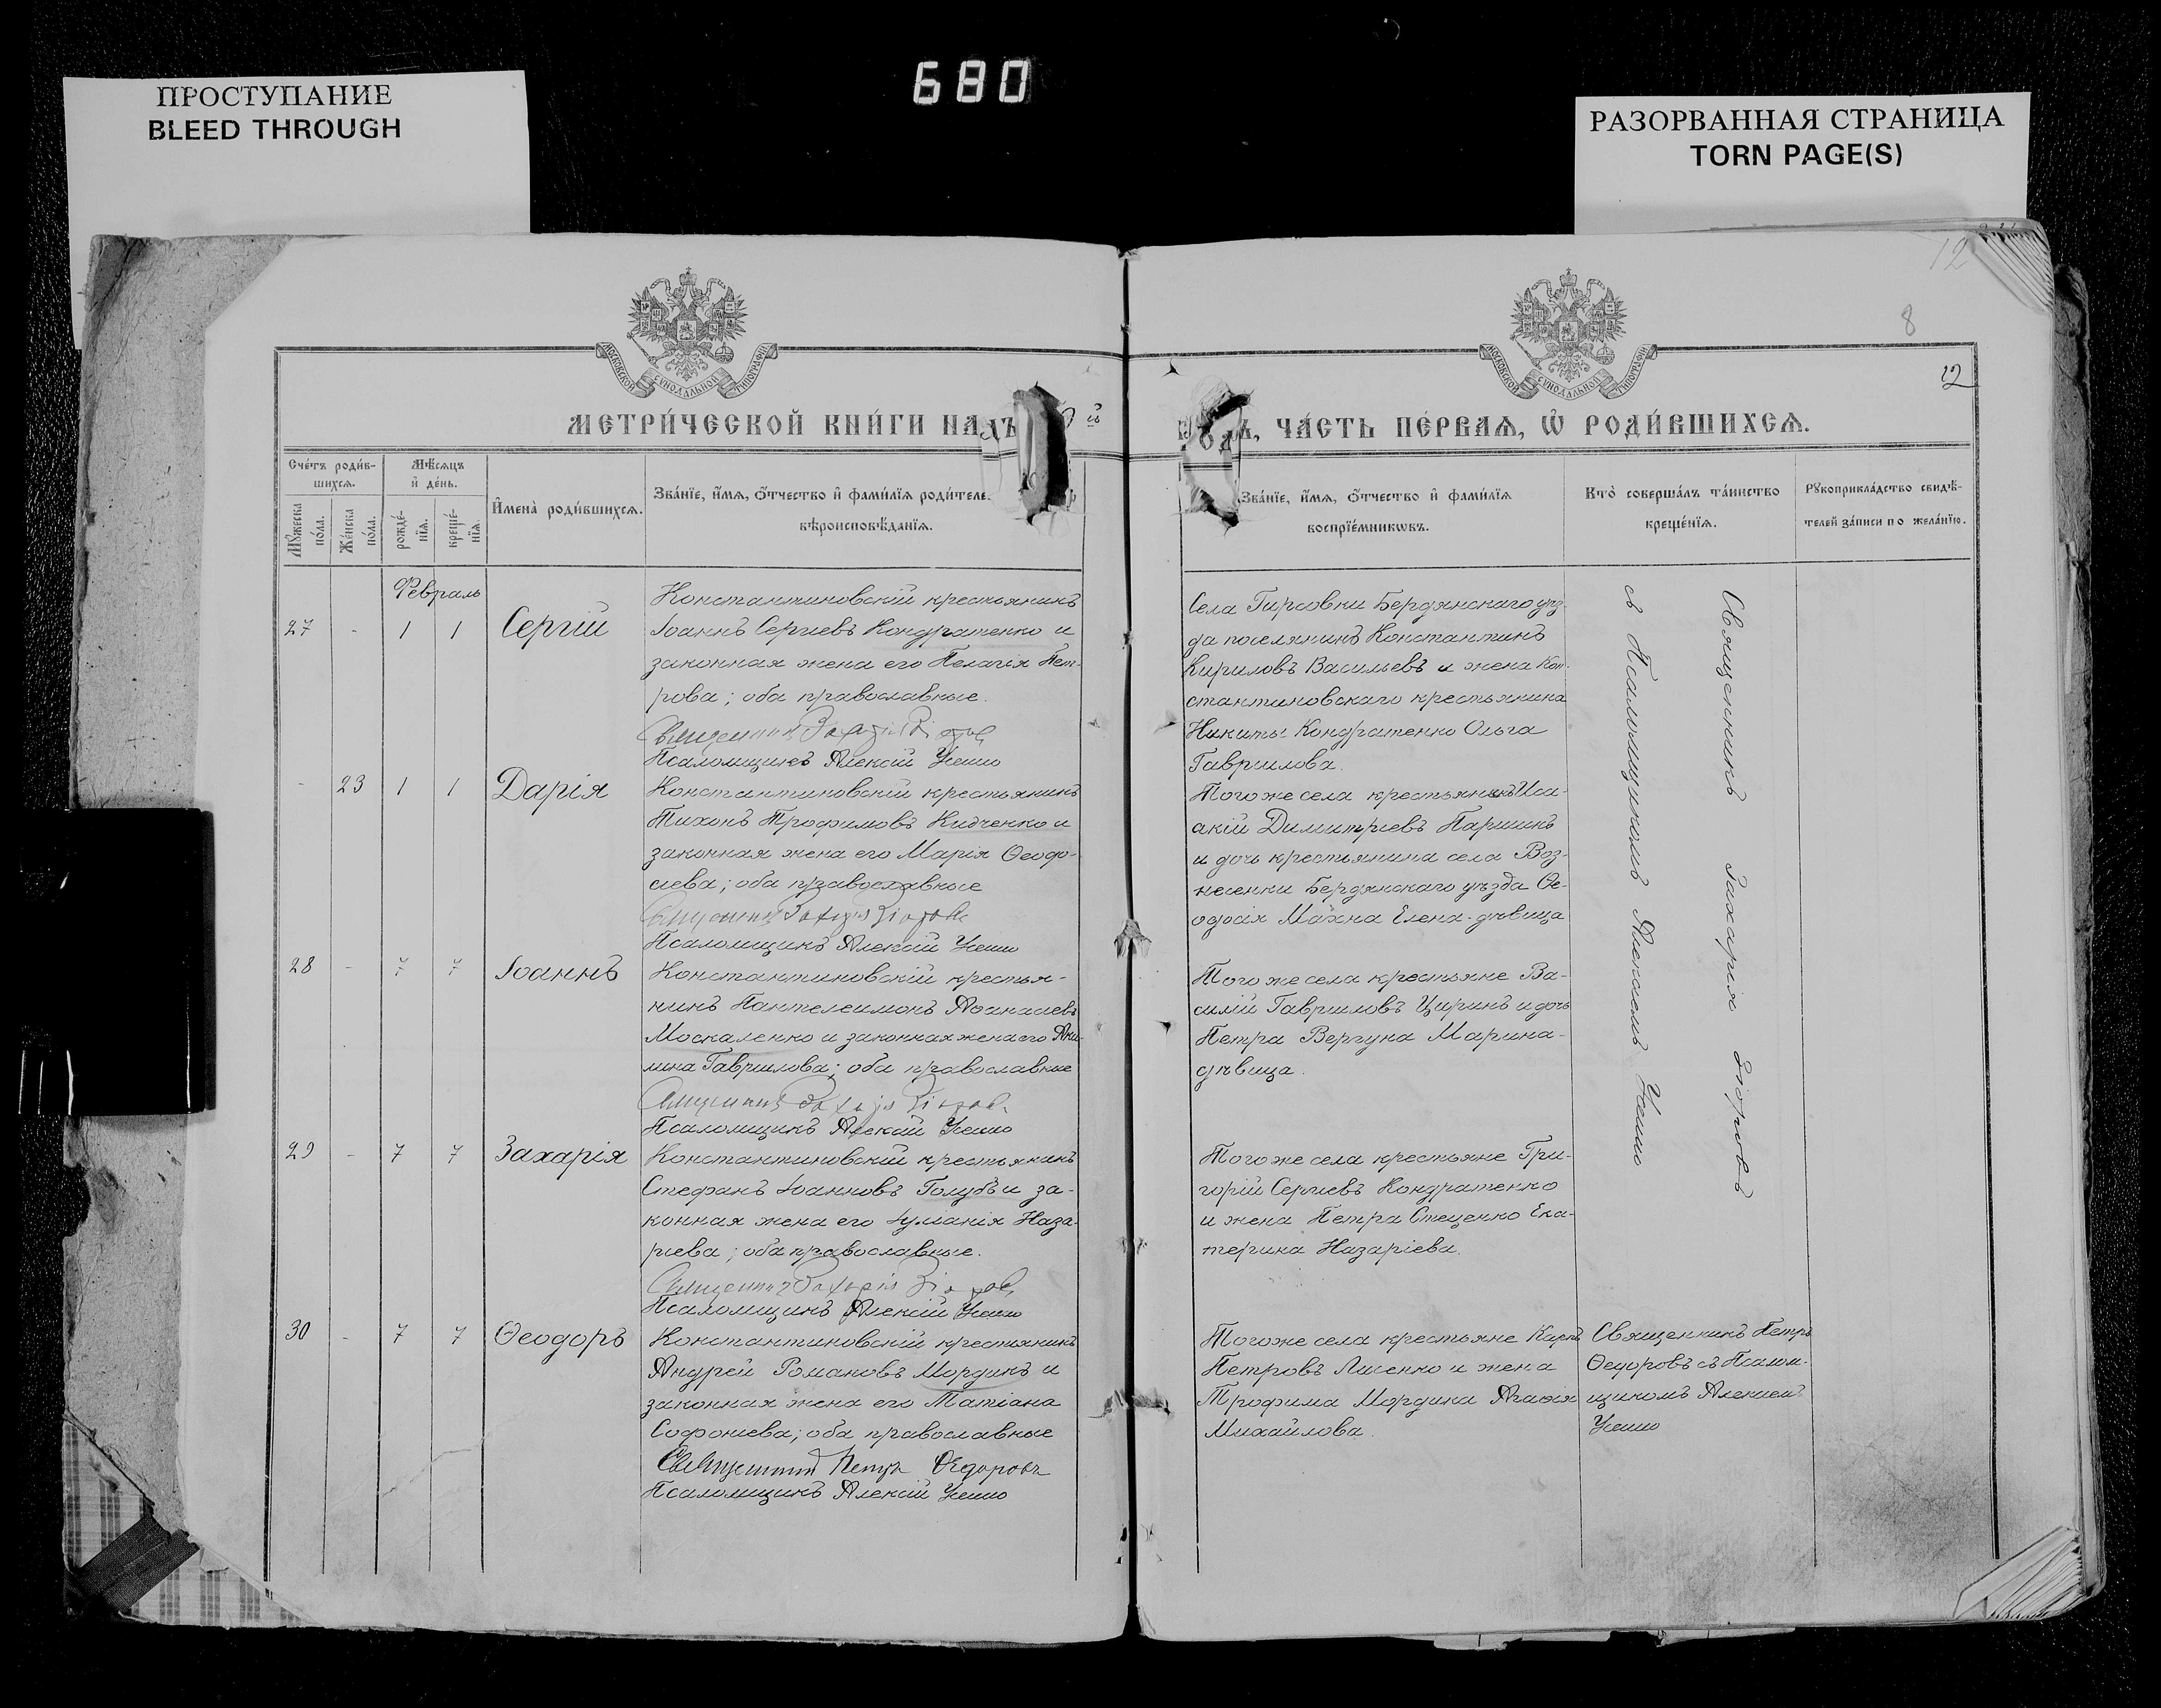 680
ПРОСТУПАНИЕ
BLEED THROUGH
РАЗОРВАННАЯ СТРАНИЦА
TORN PAGE(S)
12
8
12
МОСКОВСКОЙ СѴНОДАЛЬНОЙ ТИПОГРАФІИ
МЕТРИ́ЧЕСКОЙ КНИ́ГИ НА
МОСКОВСКОЙ СѴНОДАЛЬНОЙ ТИПОГРАФІИ
ЧА́СТЬ ПЕ́РВАѦ, Ѡ҆ РОДИ́ВШИХСѦ.
Сче́тъ роди́в-
шихсѧ.
Мꙋ́жеска
по́ла.
Же́нска
по́ла.
Мѣ́сѧцъ
и҆ де́нь.
рожде́-
нїѧ.
креще́-
нїѧ.
И҆мена̀ роди́вшихсѧ.
Зва́нїе, и҆́мѧ, ѻ҆́тчество и҆ фами́лїѧ роди́теле
вѣроисповѣ́данїѧ.
Зва́нїе, и҆́мѧ, ѻ҆́тчество и҆ фами́лїѧ
воспрїе́мникѡвъ.
Кто̀ соверша́лъ та́инство
креще́нїѧ.
Рꙋкоприкла́дство свидѣ́-
телей за́писи по жела́нїю.
Февраль
27 - 1 1 Сергій
Константиновскій крестьянинъ
Іоаннъ Сергиевъ Кондратенко и
законная жена его Пелагія Пет-
рова; оба православные.
Священникъ Захарія
Псаломщикъ Алексій Усенко
Села Гирсовки Бердянскаго уѣз-
да поселянинъ Константинъ
Кириловъ Васильевъ и жена Кон-
стантиновскаго крестьянина
Никиты Кондратенко Ольга
Гаврилова.
- 23 1 1 Дарія
Константиновскій крестьянинъ
Тихонъ Трофимовъ Кидченко и
законная жена его Марія Ѳеодо-
сиева; оба православные
Священникъ Захарія
Псаломщикъ Алексій Усенко
Того же села крестьянинъ Иса-
акій Димитриевъ Паршинъ
и дочь крестьянина села Воз-
несенки Бердянскаго уѣзда Ѳе-
одосія Махна Елена-дѣвица
28 - 7 7 Іоаннъ
Константиновскій крестья-
нинъ Пантелеимонъ Аѳанасиевъ
Москаленко и законная жена его Аки-
лина Гаврилова; оба православные
Священникъ Захарія
Псаломщикъ Алексій Усенко
Того же села крестьяне Ва-
силій Гавриловъ Циринъ и дочь
Петра Вергуна Марина-
дѣвица.
29 - 7 7 Захарія
Константиновскій крестьянинъ
Стефанъ Іоанновъ Голубъ и за-
конная жена его Іуліанія Наза-
риева; оба православные.
Священникъ Захарія
Псаломщикъ Алексій Усенко
Того же села крестьяне Гри-
горій Сергиевъ Кондратенко
и жена Петра Стеценко Ека-
терина Назаріева.
30 - 7 7 Ѳеодоръ
Константиновскій крестьянинъ
Андрей Романовъ Мордикъ и
законная жена его Татіана
Софониева; оба православные
Священникъ Петръ Ѳедоровъ
Псаломщикъ Алексій Усенко
Того же села крестьяне Карпъ
Петровъ Лисенко и жена
Трофима Мордика Агаѳія
Михайлова.
Священникъ Захарія
съ Псаломщикомъ Алексіемъ Усенко
Священникъ Петръ
Ѳедоровъ съ Псалом-
щикомъ Алексіемъ
Усенко